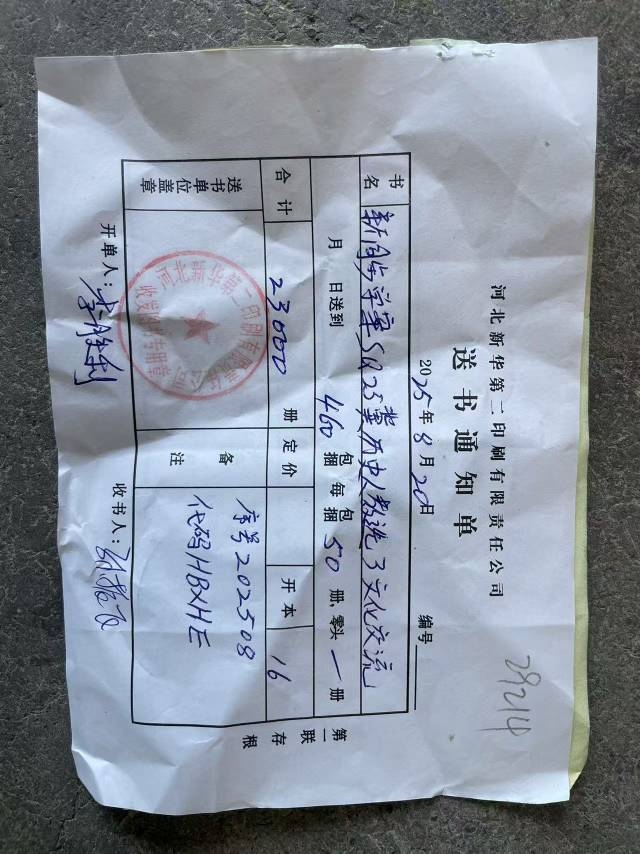 河北新华第二印刷有限责任公司
送书通知单
2025年8月20日 编号
29214
书名 新同步学案SQ25冀历史人教选3文化交流
月 日送到 460 包捆 每包捆 50 册、零头 一 册
合计 23000 册 定价 开本 16
送书单位盖章
河北新华第二印刷有限责任公司
备注 序号202508
代码HBXHE
开单人：李胜利 收书人：
第一联 存根